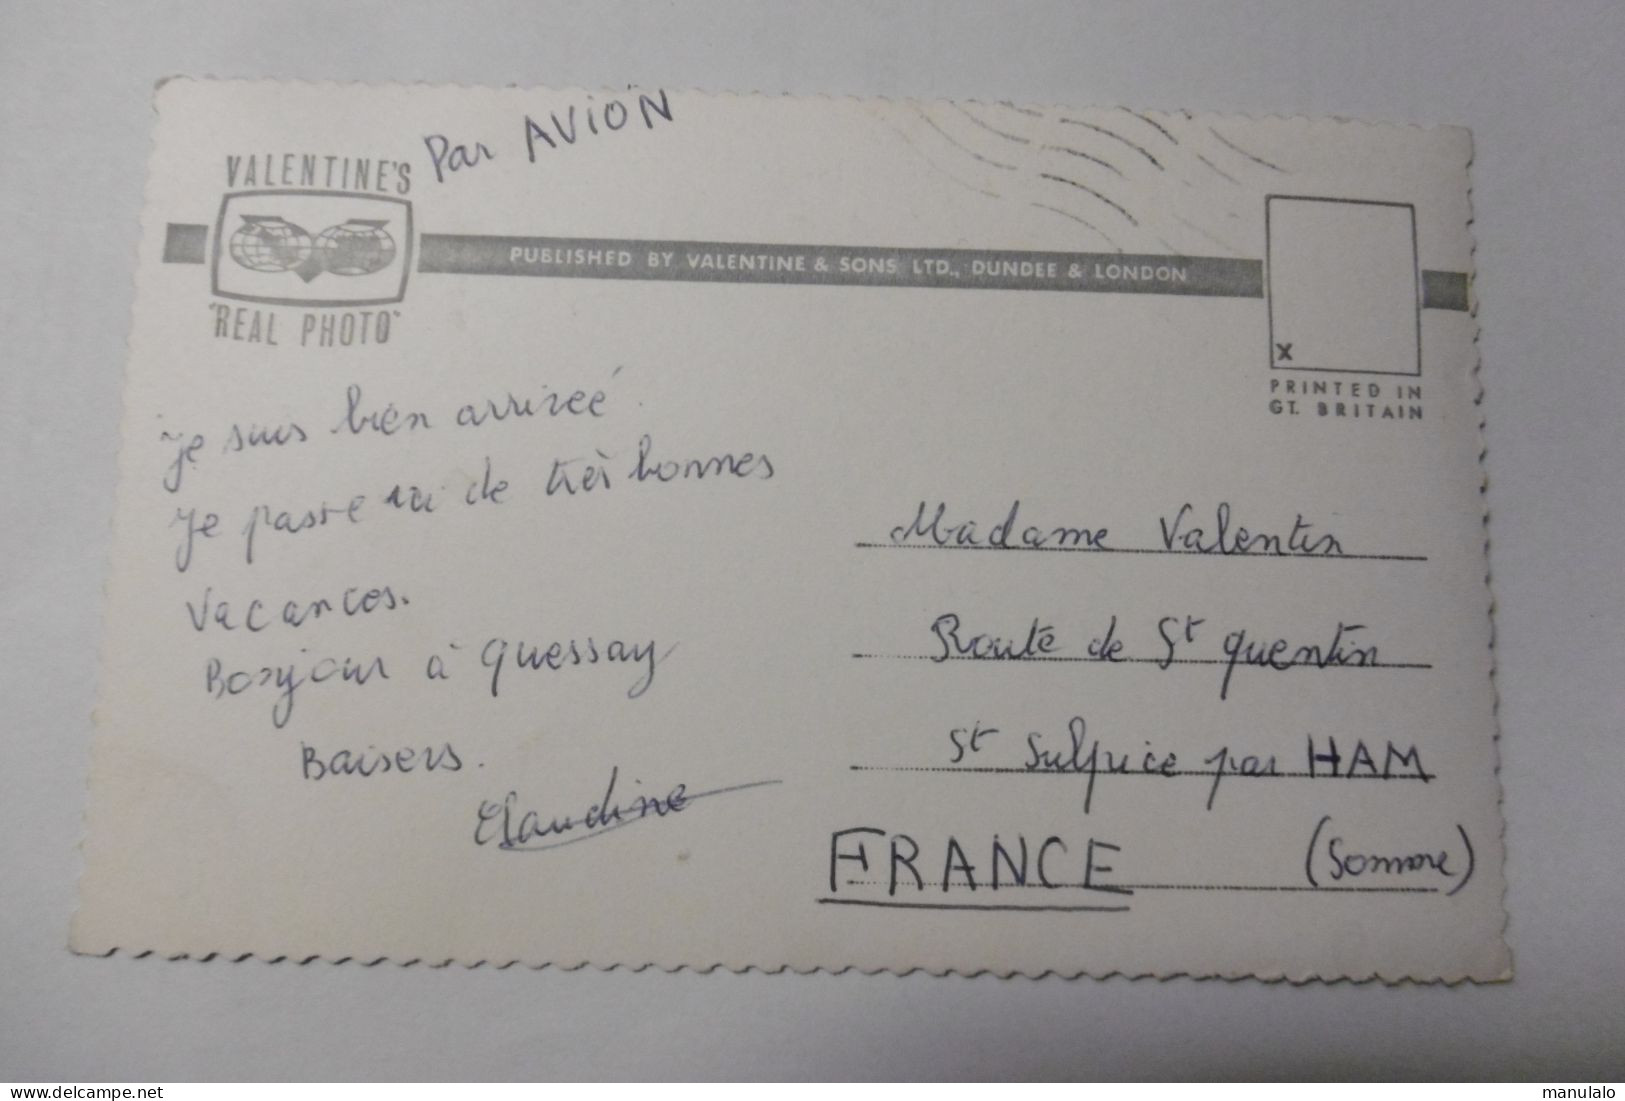 Par AVION
VALENTINE'S
"REAL PHOTO"
PUBLISHED BY VALENTINE & SONS LTD., DUNDEE & LONDON
X
PRINTED IN
GT. BRITAIN
Je suis bien arrivée.
Je passe ici de très bonnes
vacances.
Bonjour à Quessay
Baisers.
Claudine
Madame Valentin
Route de St Quentin
St Sulpice par HAM
FRANCE (Somme)
delcampe.net
manulalo